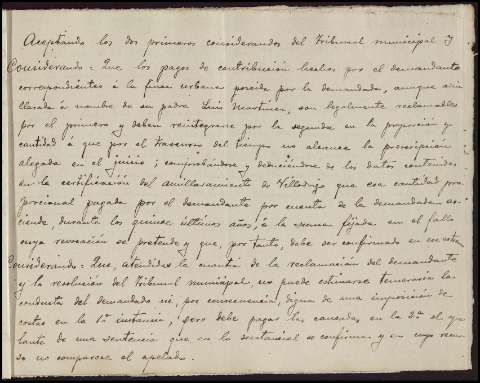 Aceptando los dos primeros considerandos del Tribunal municipal y
Considerando = Que los pagos de contribución hechos por el demandante
correspondientes á la finca urbana poseida por la demandada, aunque
clarada á nombre de su padre Luis Martinez, son legalmente reclamables
por el primero y deben reintegrarse por la segunda en la proporción y
cantidad á que por el trascurso del tiempo no alcance la prescripción
alegada en el juicio; comprobándose y deduciéndose de los datos contenidos
en la certificación del amillaramiento de Villodrigo que esa cantidad pro-
porcional pagada por el demandante por cuenta de la demandada as-
ciende, durante los quince últimos años, á la suma fijada en el fallo
cuya revocación se pretende y que, por tanto, debe ser confirmado en
Considerando = Que, atendidas la cuantía de la reclamación del demandante
y la resolución del Tribunal municipal, no puede estimarse temeraria la
conducta del demandado ni, por consecuencia, digna de una imposición de
costas en la 1ª instancia; pero debe pagar las causadas en la 2ª el ape-
lante de una sentencia que en lo sustancial se confirma y en cuyo recur-
so no comparece el apelado.